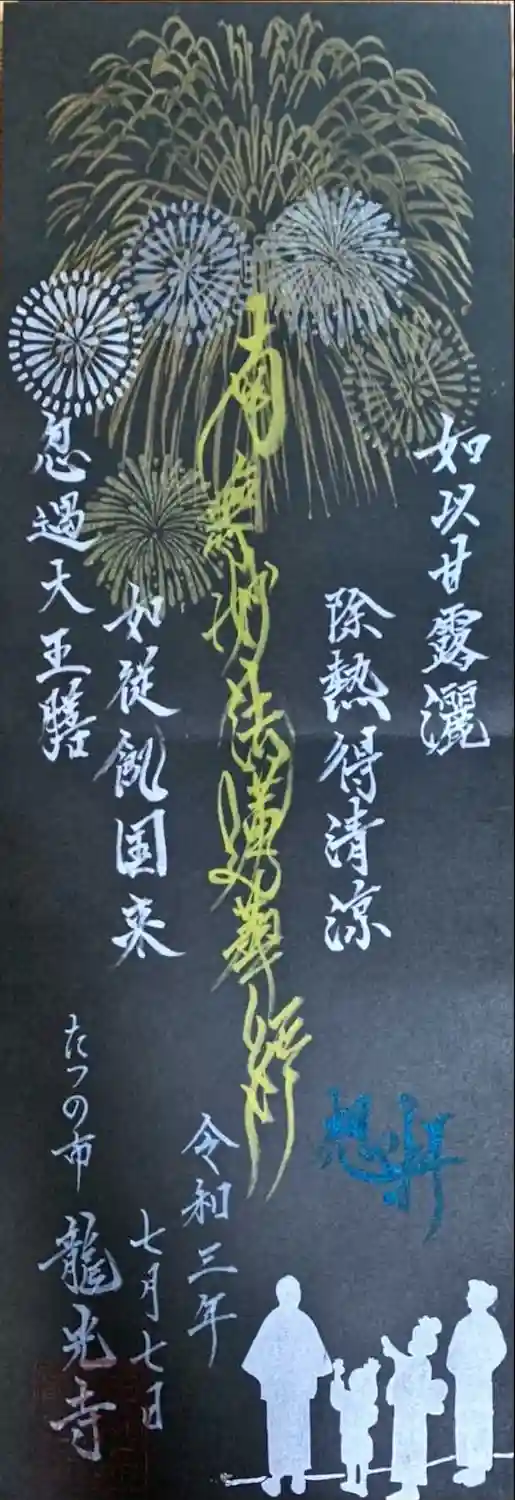 如以甘露灑
除熱得清涼
南無妙法蓮華経
如従飢国来
忽遇大王膳
令和三年
七月七日
たつの市 龍光寺